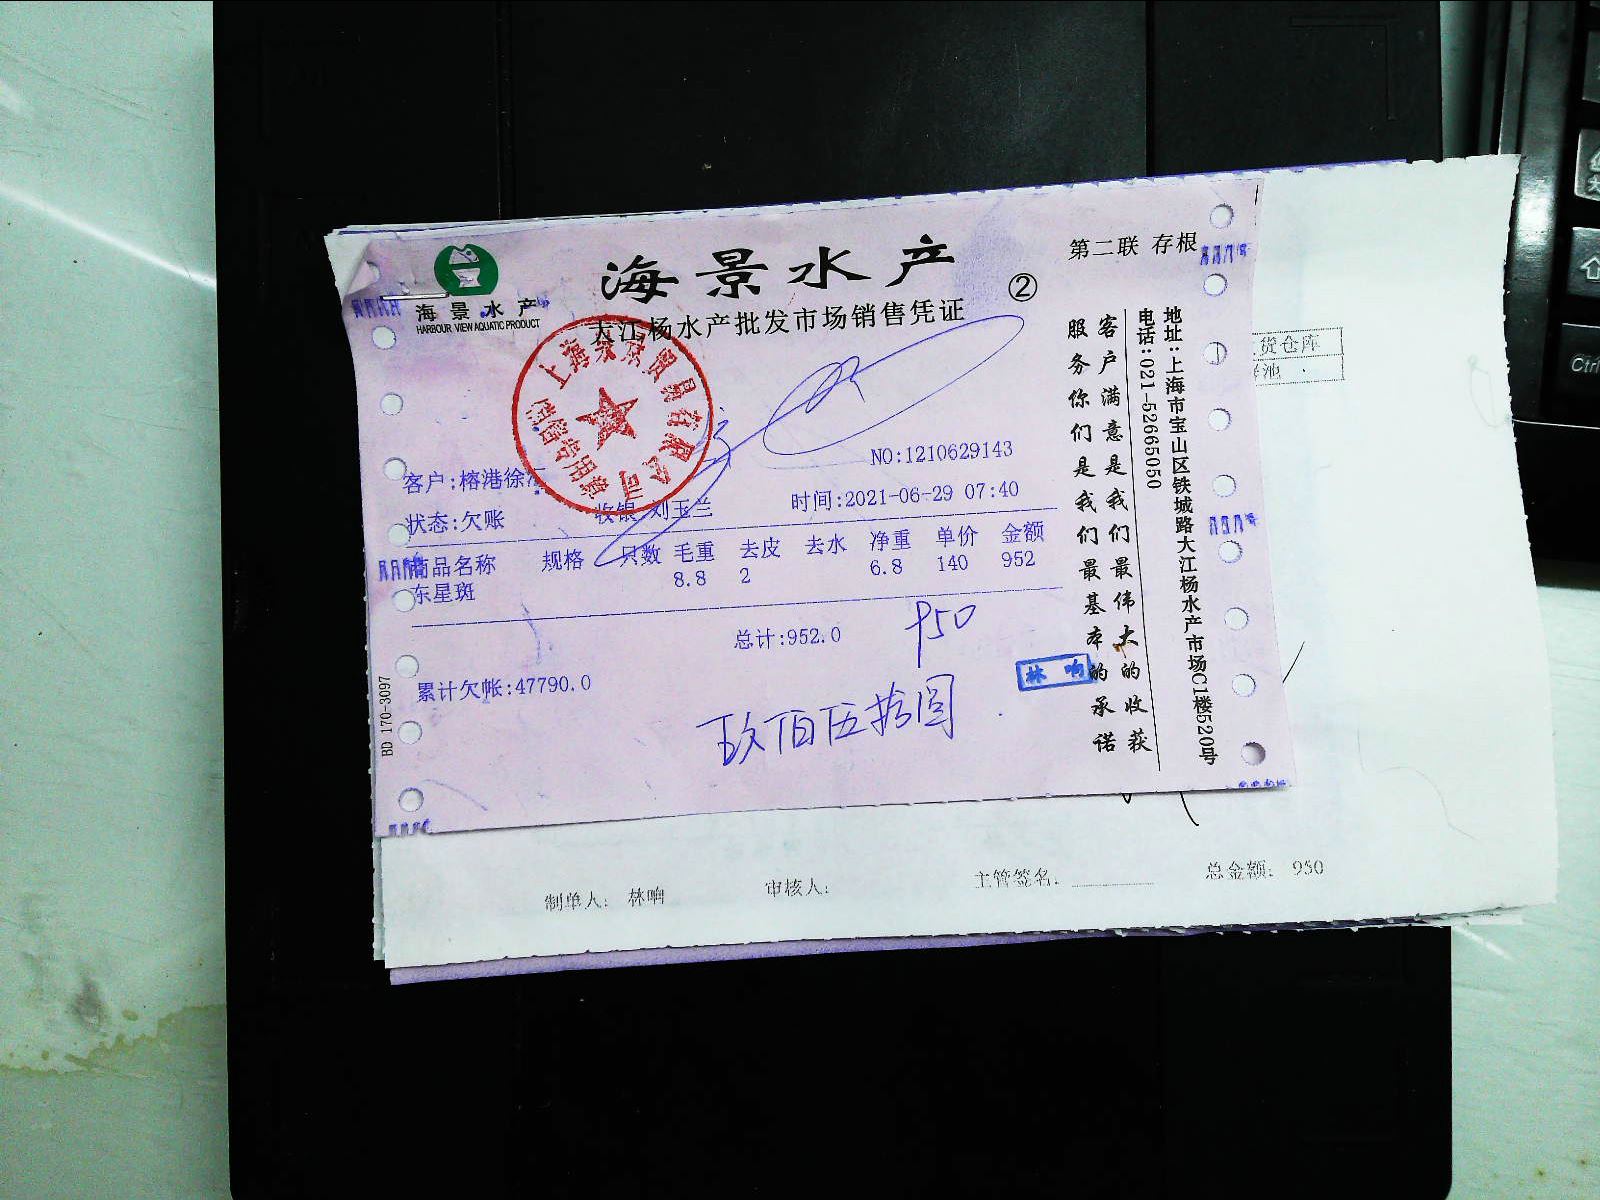 海景水产
HARBOUR VIEW AQUATIC PRODUCT
海景水产
②
第二联 存根
大江杨水产批发市场销售凭证
销售专用章
NO:1210629143
客户:榕港徐
时间:2021-06-29 07:40
状态:欠账
收银 刘玉兰
商品名称 规格 只数 毛重 去皮 去水 净重 单价 金额
东星斑 8.8 2 6.8 140 952
总计:952.0
950
累计欠帐:47790.0
玖佰伍拾圆
林响
BD 170-3097
客户满意是我们最伟大的收获
服务你们是我们最基本的承诺
地址:上海市宝山区铁城路大江杨水产市场C1楼520号
电话:021-52665050
货仓库
池
制单人: 林响
审核人:
主管签名:
总金额: 950
Ctrl